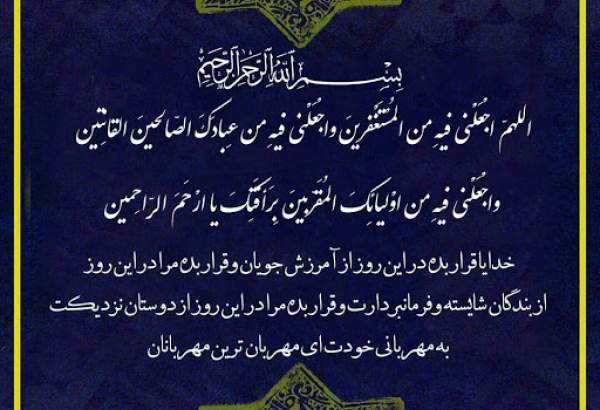 بِسْمِ اللهِ الرَّحْمنِ الرَّحِيمِ
اللهمّ اجْعَلْنی فیهِ من المُسْتَغْفرینَ واجْعَلْنی فیهِ من عِبادَکَ الصّالحینَ القانِتین
واجْعَلْنی فیهِ من اوْلیائِکَ المُقَرّبینَ بِرَأفَتِکَ یا ارْحَمَ الرّاحِمین
خدایا قرار بده در این روز از آمرزش جویان و قرار بده مرا در این روز
از بندگان شایسته و فرمانبردارت و قرار بده مرا در این روز از دوستان نزدیکت
به مهربانی خودت ای مهربان ترین مهربانان